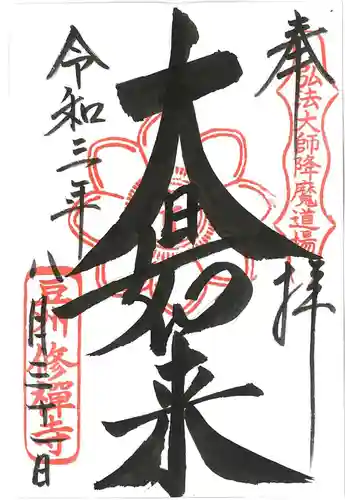 奉拝
弘法大師降魔道場
大日如来
令和三年
八月三十一日
豆州修禅寺